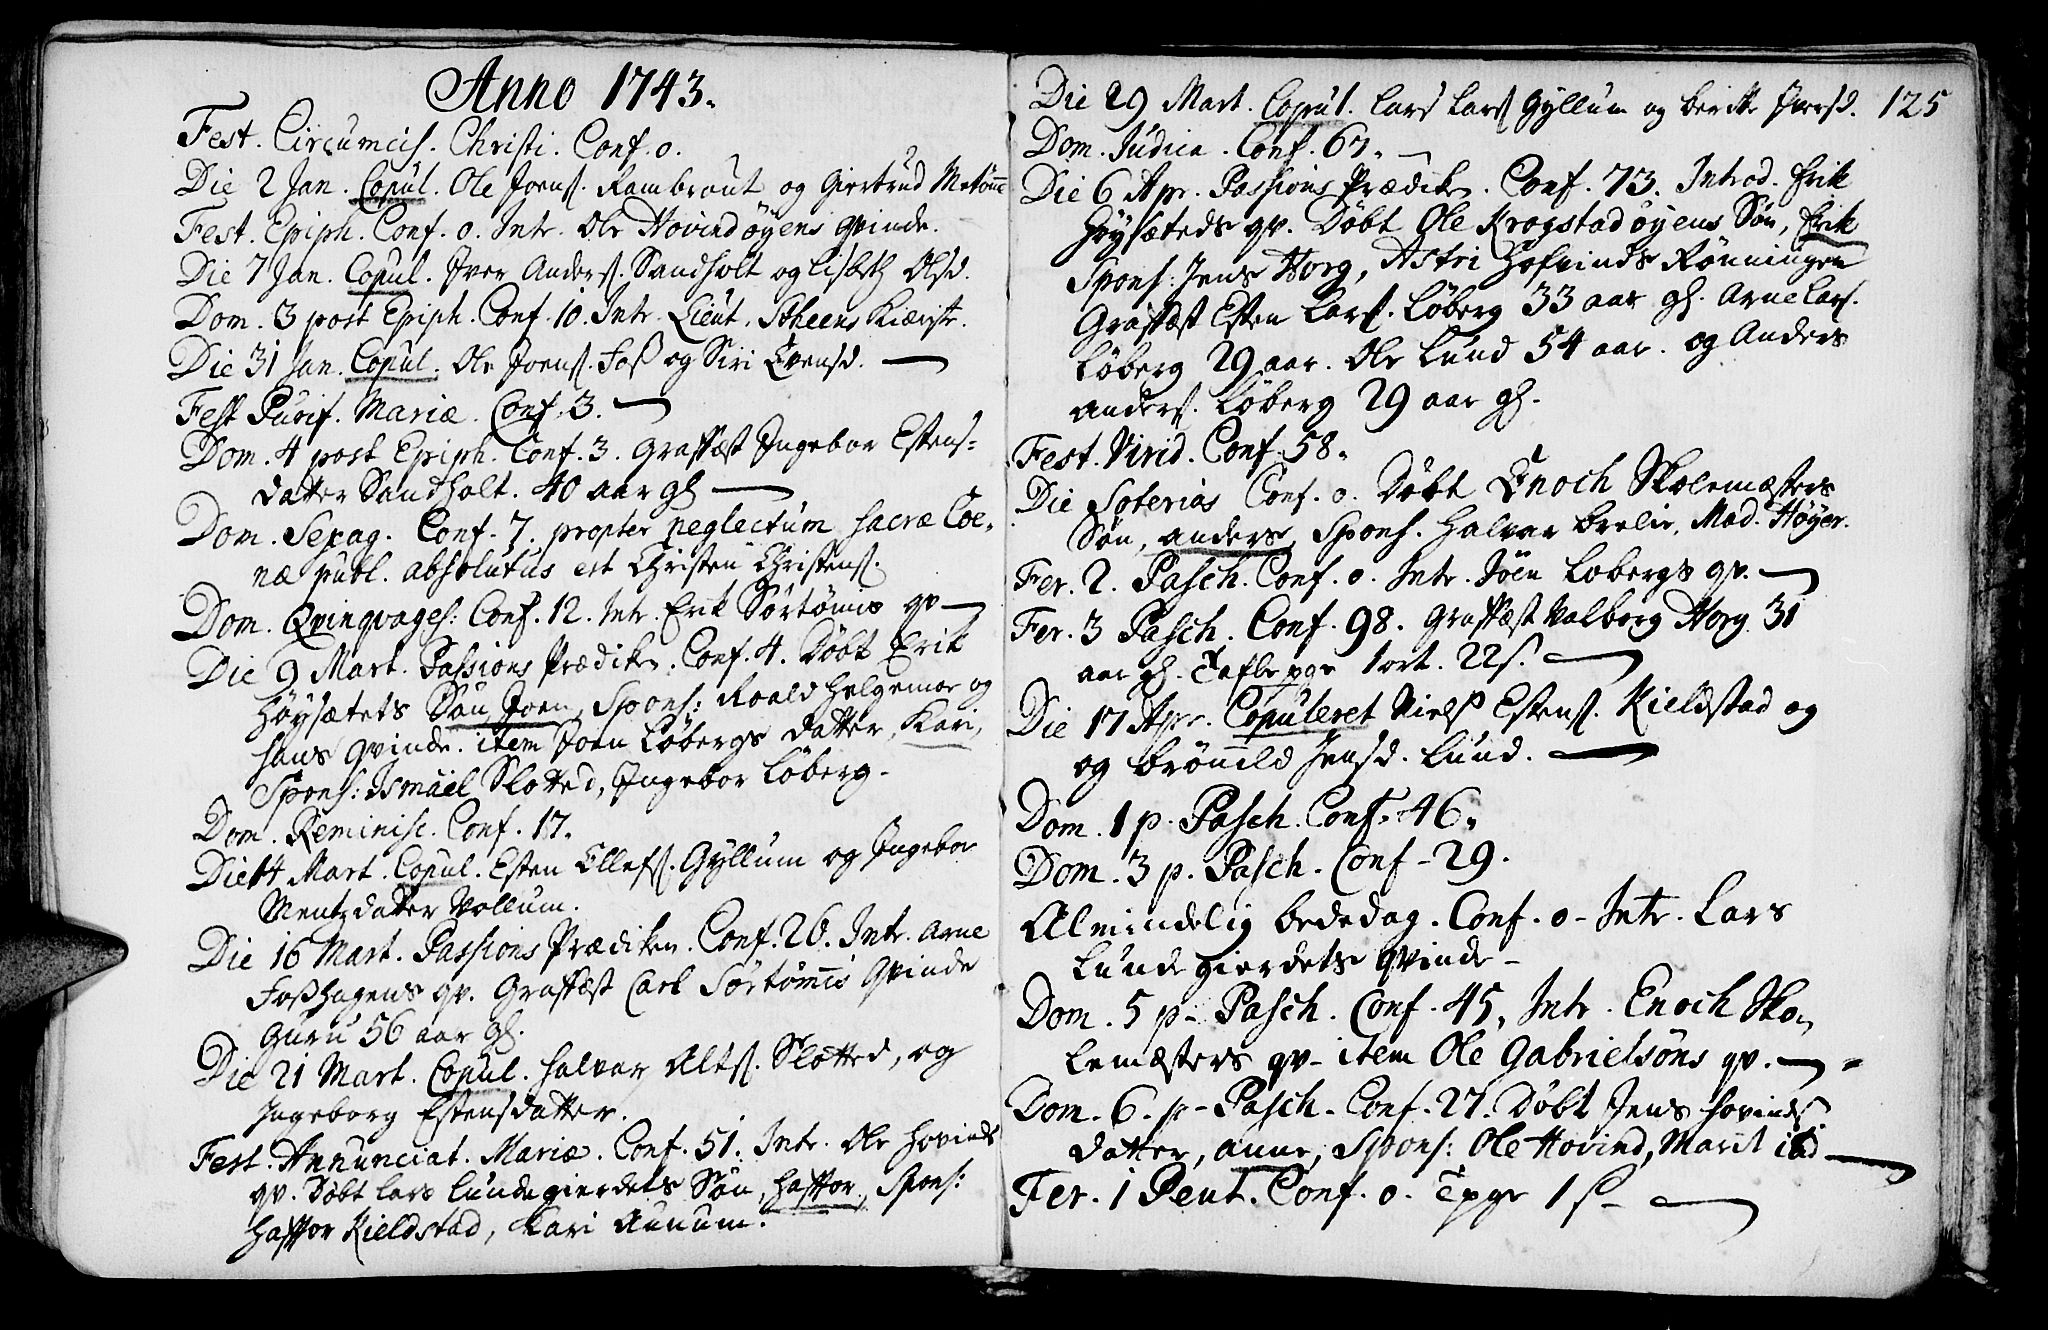 Anno 1743.
Fest. Circumcis. Christi. Conf. 0.
Die 2 Jan. Copul. Ole Joens. Rambraut og Giertrud
Fest. Epiph. Conf. 0. Intr. Ole Hovindøyens Qvinde.
Die 7 Jan. Copul. Iver Anders. Sandholt og Lisbeth Olsd.
Dom. 3 post Epiph. Conf. 10. Intr. Lieut. Stheens Kiærste.
Die 31 Jan. Copul. Ole Joens. Foss og Siri Evensd.
Fest Purif. Mariæ. Conf. 3.
Dom. 4 post Epiph. Conf. 3. Graffæst Ingebor Estens-
datter Sandholt. 40 aar gl.
Dom. Sexag. Conf. 7. propter neglectum sacræ Coe-
næ publ. absolutus est Christen Christens.
Dom. Qvinqvages: Conf. 12. Intr. Erik Sørtømis qv
Die 9 Mart. Passions Prædiken. Conf. 4. Døbt Erik
Høysætets Søn Joen, Spons: Roald Helgemoe og
hans Qvinde. item Joen Løbergs datter, Kari,
Spons: Ismael Slotted, Ingebor Løberg.
Dom. Reminisc. Conf. 17.
Die 14 Mart. Copul. Esten Ellefs. Gyllum og Ingebor
Mentzdatter Vollum.
Die 16 Mart. Passions Prædiken. Conf. 26. Intr. Arne
Fosshagens qv. Graffæst Carl Sørtømis Qvinde
Guru 56 aar gl.
Die 21 Mart. Copul. Halvar Olts. Slotted, og
Ingeborg Estensdatter.
Fest. Annunciat. Mariæ. Conf. 51. Intr. Ole Hovinds
qv. Døbt Lars Lundegierdets Søn, Haftor, Spons:
Haftor Kieldstad, Kari Aunum.
Die 29 Mart. Copul. Lars Lars Gyllum og Beritte Iversd. 125
Dom. Judica. Conf. 67.
Die 6 Apr. Passions Prædiken. Conf. 73. Introd. Erik
Høysæteds qv. Døbt Ole Krogstadøyens Søn, Erik
Spons: Jens Horg, Astri Hofvinds Rønningen
Graffæst Esten Lars. Løberg 33 aar gl. Arne Lars.
Løberg 29 aar. Ole Lund 54 aar. og Anders
Anders. Løberg 29 aar gl.
Fest. Virid. Conf. 58.
Die Soterias Conf. 0. Døbt Enoch Skolemæsters
Søn, Anders, Spons. Halvar Brelie, Mad. Høyer.
Fer. 2. Pasch. Conf. 0. Intr. Joen Løbergs qv.
Fer. 3 Pasch. Conf. 98. Graffæst Valborg Horg 31
aar gl. Tafle pge 1 ort. 22 s.
Die 17 Apr. Copuleret Niels Estens. Kieldstad og
og Brønnild Jensd. Lund.
Dom. 1 p. Pasch. Conf. 46.
Dom. 3 p. Pasch. Conf. 29.
Almindelig Bededag. Conf. 0. Intr. Lars
Lundegierdets Qvinde
Dom. 5 p. Pasch. Conf. 45. Intr. Enoch Sko-
lemæsters qv. item Ole Gabrielsøns qv.
Dom. 6. p. Pasch. Conf. 27. Døbt Jens Hovinds
datter, Anne, Spons: Ole Hovind, Marit ibd
Fer. 1 Pent. Conf. 0. Tpge 1 s